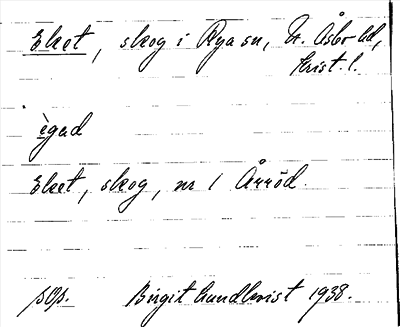 Eket, skog i Rya sn, N. Åsbo hd,
Krist. l.
ègad
Eket, skog, nr 1 Årröd.
pOp. Birgit Lundkvist 1938.